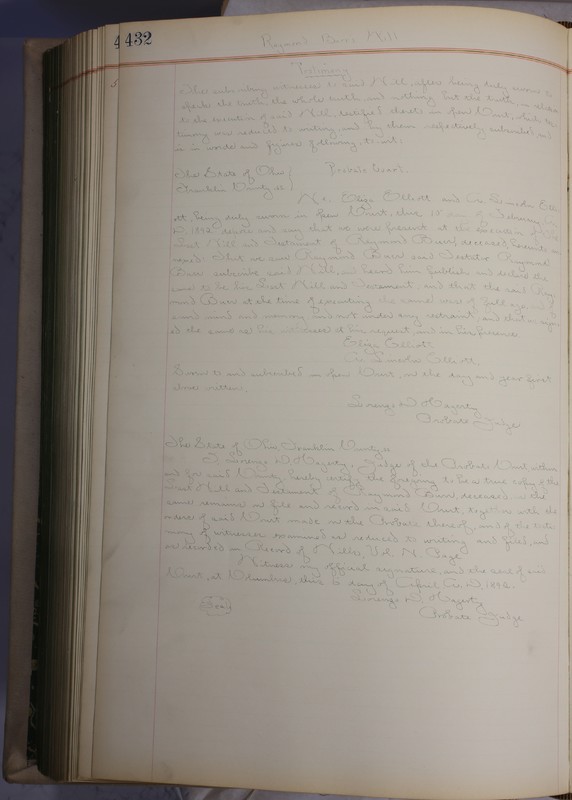 432
Raymond Burr's Will
Testimony
The subscribing witnesses to said Will, after being duly sworn to
speak the truth, the whole truth and nothing but the truth, in relation
to the execution of said Will, testified in open Court, which testi
mony was reduced to writing, and by them respectively subscribed, and
is in words and figures following, to-wit:
The State of Ohio
Franklin County ss Probate Court.
We, Eliza Elliott and Lincoln Elli
ott, being duly sworn in open Court, this 18 day of February A.
D. 1892 depose and say that we were present at the execution of the
Last Will and Testament of Raymond Burr, deceased, hereunto an
nexed: That we saw Raymond Burr said Testator
Burr subscribe said Will, and heard him publish and declare the
same to be his Last Will and Testament, and that the said Ray
mond Burr at the time of executing the same was of full age, and of
sound mind and memory, and not under any restraint, and that we sign
ed the same as witnesses at his request and in his presence.
Eliza Elliott
Lincoln Elliott
Sworn to and subscribed in open Court, on the day and year first
above written.
Lorenzo D. Hagerty
Probate Judge
The State of Ohio, Franklin County, ss
I, Lorenzo D. Hagerty, Judge of the Probate Court within
and for said County, hereby certify the foregoing to be a true copy of the
Last Will and Testament of Raymond Burr, deceased, as the
same remains on file and record in said Court, together with the
order of said Court made on the Probate thereof, and of the testi
mony of witnesses examined as reduced to writing and filed, and
as recorded in Record of Wills, Vol. N. Page
Witness my official signature, and the seal of said
Court, at Columbus, this day of April A. D. 1892
Lorenzo D. Hagerty
Seal
Probate Judge